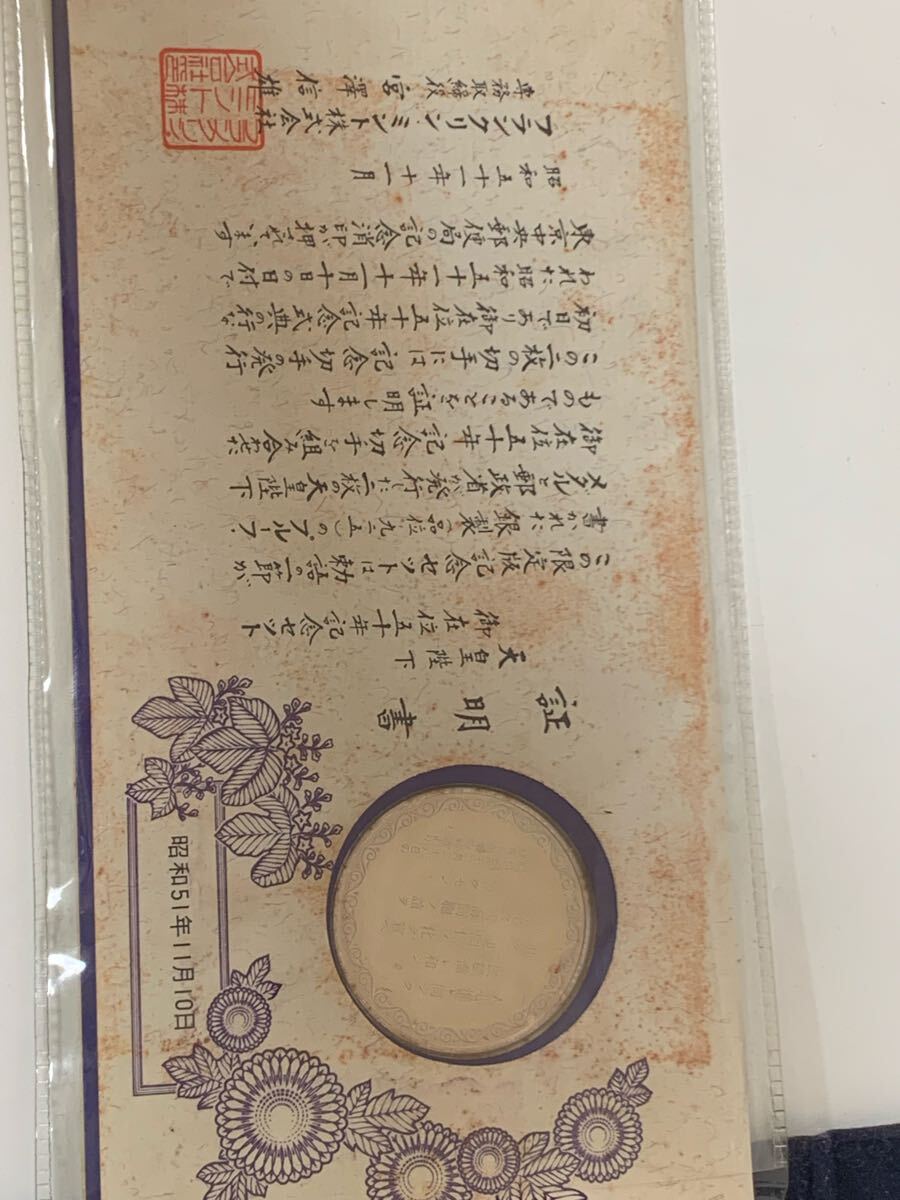 証明書
天皇陛下
御在位五十年記念セット
この限定版記念セットは勅語の一節が
書かれた銀製(品位九二五)のプルーフ・
メダルと郵政省が発行した二枚の天皇陛下
御在位五十年記念切手を組み合せた
ものであることを証明します
この二枚の切手には記念切手の発行
初日であり御在位五十年記念式典の行な
われた昭和五十一年十一月十日の日付で
東京中央郵便局の記念消印が押されています
昭和五十一年十一月
フランクリン・ミント株式会社
専務取締役 宮澤信雄
昭和51年11月10日